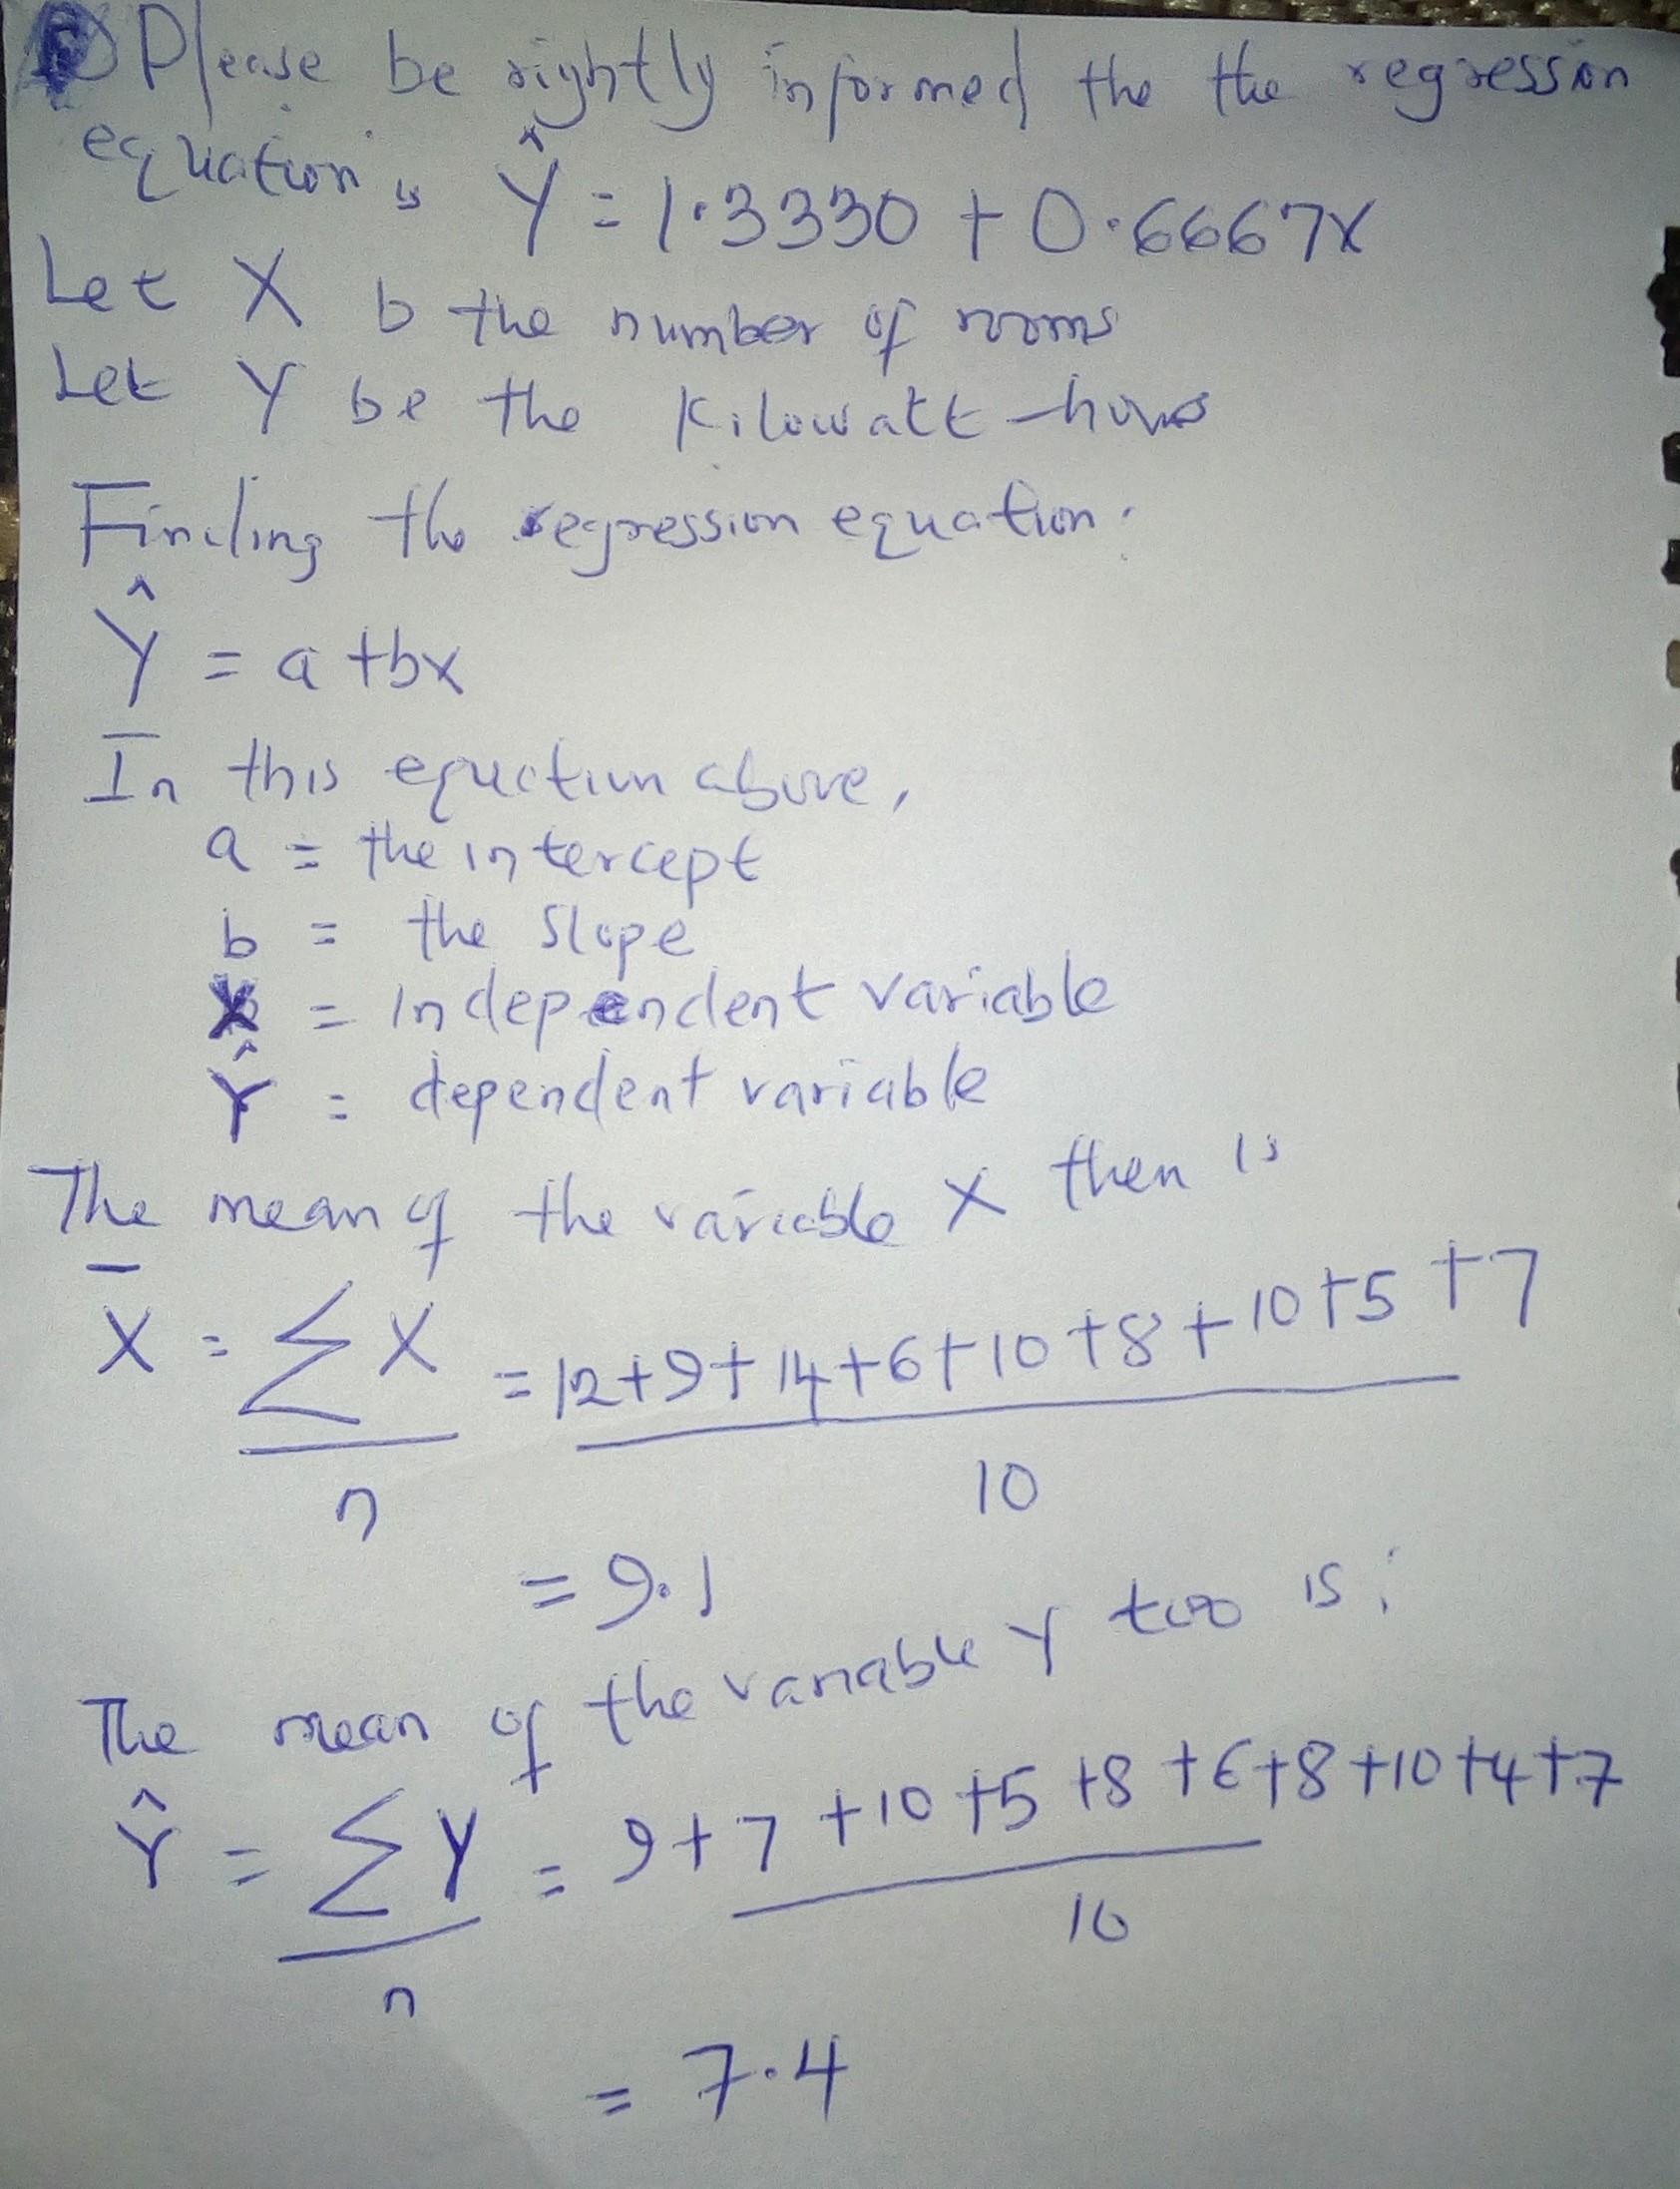 Please be rightly informed the the regression
equation is Ŷ = 1.3330 + 0.6667X
Let X b the number of rooms
Let Y be the Kilowatt-hours
Finding the regression equation:
Ŷ = a + bx
In this equation above,
a = the intercept
b = the slope
X = Independent variable
Ŷ = dependent variable
The mean of the variable X then is
X̄ = ΣX = 12+9+14+6+10+8+10+5+7
n 10
= 9.1
The mean of the variable Y too is:
Ŷ = ΣY = 9+7+10+5+8+6+8+10+4+7
n 10
= 7.4